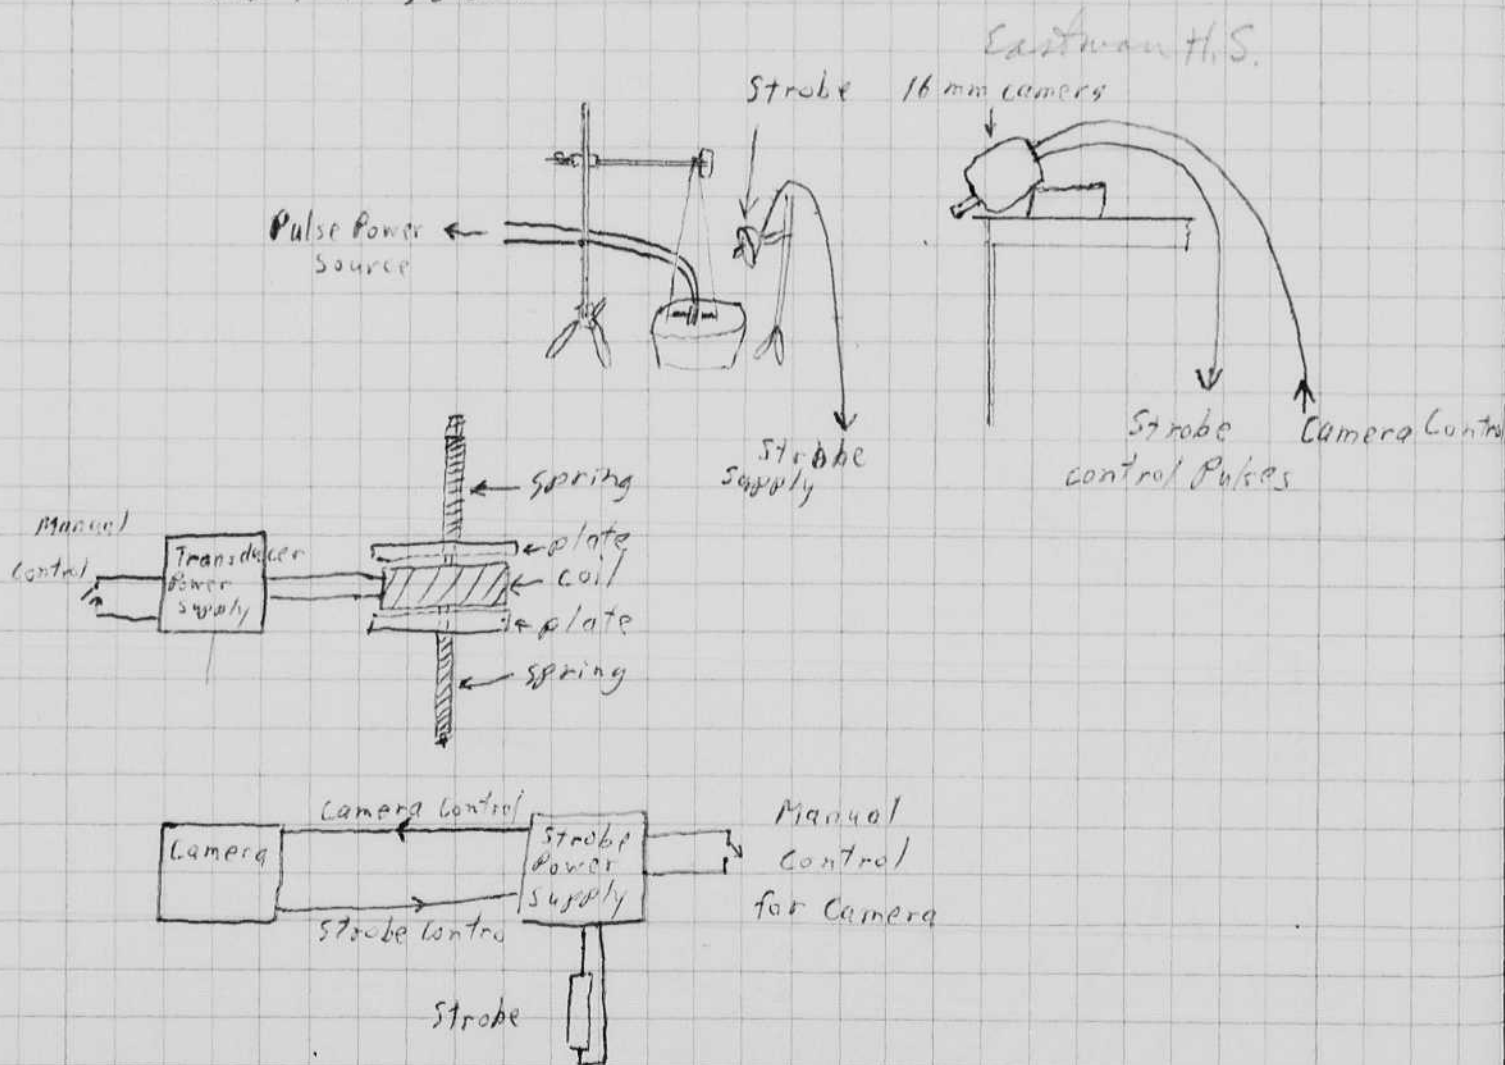 Eastman H.S.
Strobe
16 mm camera
Pulse Power
Source
Strobe
Supply
Strobe
control Pulses
Camera Contro
spring
plate
coil
plate
spring
Manual
control
Transducer
Power
Supply
Camera Control
Camera
Strobe
Power
Supply
Strobe Contro
Manual
Control
for Camera
Strobe